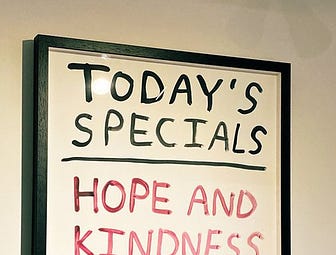 TODAY'S
SPECIALS
HOPE AND
KINDNESS